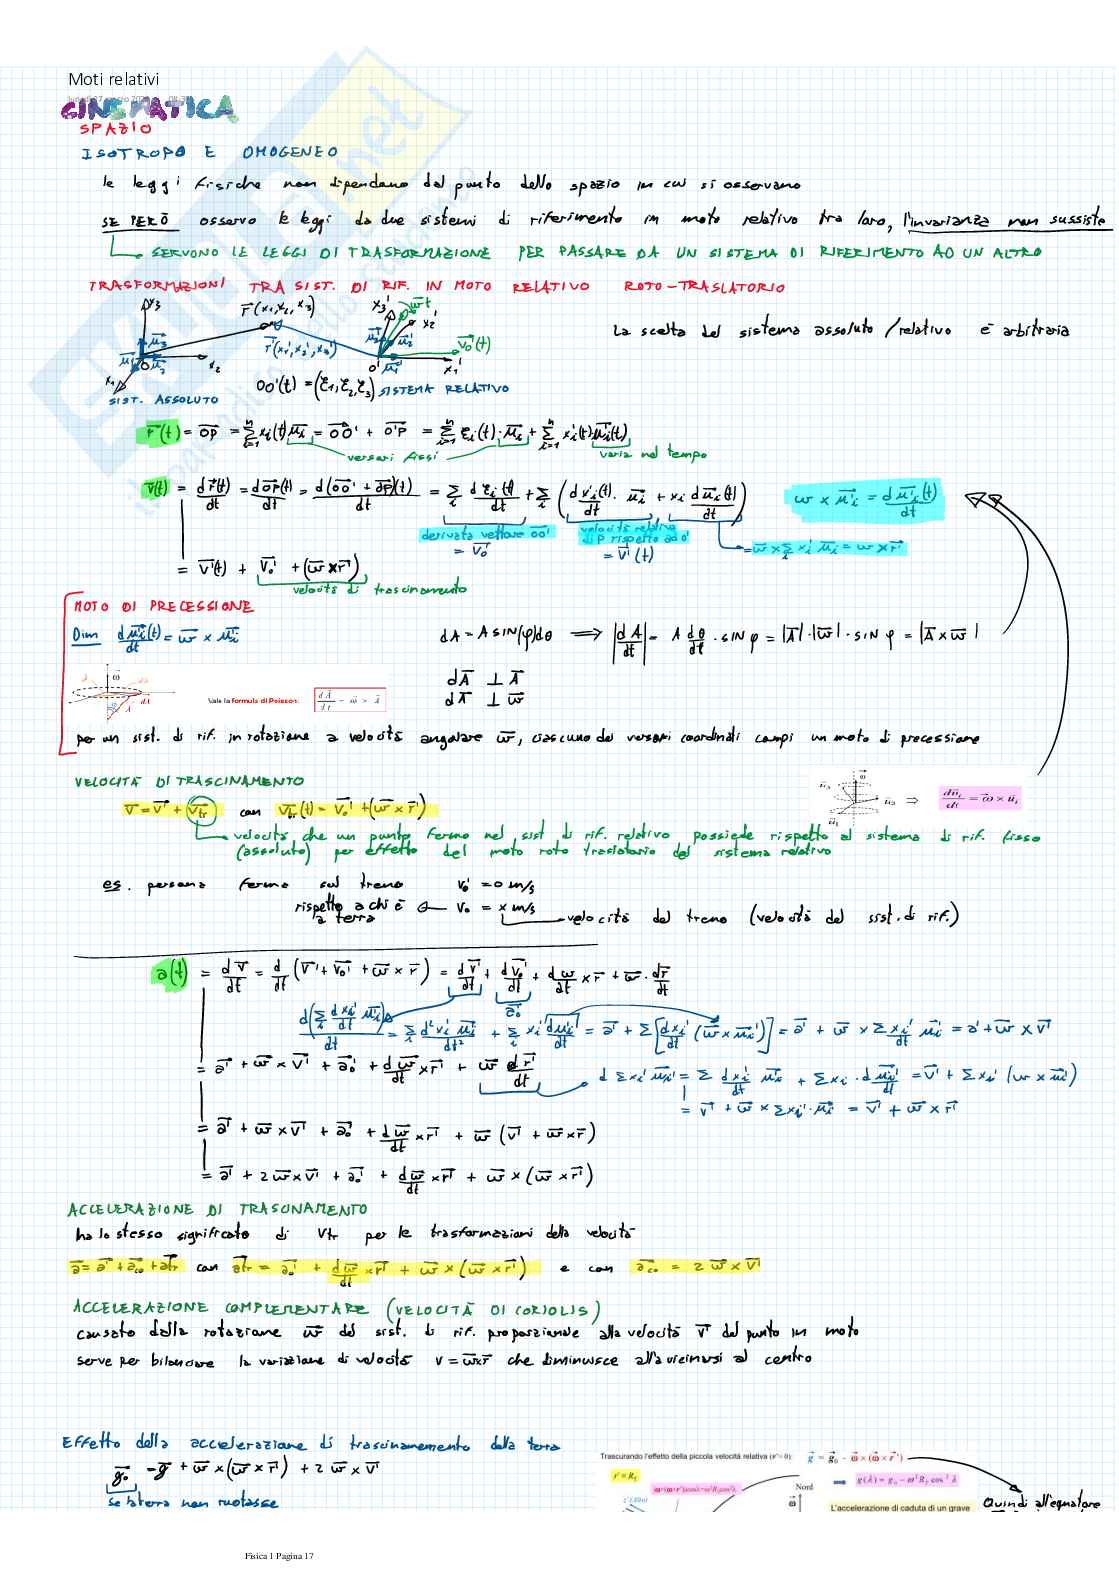 Moti relativi
CINEMATICA
SPAZIO
ISOTROPO E OMOGENEO
le leggi fisiche non dipendono dal punto dello spazio in cui si osservano
SE PERÒ osservo le leggi da due sistemi di riferimento in moto relativo tra loro, l'invarianza non sussiste
SERVONO LE LEGGI DI TRASFORMAZIONE PER PASSARE DA UN SISTEMA DI RIFERIMENTO AD UN ALTRO
TRASFORMAZIONI TRA SIST. DI RIF. IN MOTO RELATIVO ROTO-TRASLATORIO
La scelta del sistema assoluto/relativo è arbitraria
r(x₁, x₂, x₃)
r'(x₁', x₂', x₃')
SIST. ASSOLUTO
OO'(t) = (ξ₁, ξ₂, ξ₃) SISTEMA RELATIVO
r(t) = OP = Σ xᵢ(t) uᵢ = OO' + O'P = Σ ξᵢ(t)·uᵢ + Σ xᵢ'(t) uᵢ'(t)
versori fissi
varia nel tempo
v(t) = dr(t)/dt = dOP(t)/dt = d(OO' + O'P)(t)/dt = Σ dξᵢ(t)/dt + Σ (dxᵢ'(t)/dt · uᵢ + xᵢ duᵢ(t)/dt)
ω × uᵢ' = duᵢ'(t)/dt
derivata vettore OO' = v₀'
velocità relativa di P rispetto ad O' = v'(t)
= ω × Σ xᵢ' uᵢ = ω × r'
= v'(t) + v₀' + (ω × r')
velocità di trascinamento
MOTO DI PRECESSIONE
Dim duᵢ'(t)/dt = ω × uᵢ'
dA = A SIN(φ)dθ ⟹ |dA/dt| = A dθ/dt · SIN φ = |A|·|ω|·SIN φ = |A × ω|
dA ⊥ A
dA ⊥ ω
Vale la formula di Poisson: dA/dt = ω × A
per un sist. di rif. in rotazione a velocità angolare ω, ciascuno dei versori coordinati compi un moto di precessione
VELOCITÀ DI TRASCINAMENTO
v = v' + vtr con vtr(t) = v₀' + (ω × r')
⇒ duᵢ/dt = ω × uᵢ
velocità che un punto fermo nel sist di rif. relativo possiede rispetto al sistema di rif. fisso
(assoluto) per effetto del moto roto traslatorio del sistema relativo
es. persona ferma sul treno v₀' = 0 m/s
rispetto a chi è a terra v₀ = x m/s velocità del treno (velocità del sist. di rif.)
a(t) = dv/dt = d/dt (v' + v₀' + ω × r) = dv'/dt + dv₀'/dt + dω/dt × r + ω · dr/dt
a₀'
d(Σ dxᵢ'/dt uᵢ')/dt = Σ d²xᵢ' uᵢ/dt² + Σ xᵢ' duᵢ'/dt = a' + Σ[dxᵢ'/dt (ω × uᵢ')] = a' + ω × Σ xᵢ'/dt uᵢ' = a' + ω × v'
= a' + ω × v' + a₀' + dω/dt × r' + ω dr'/dt
d Σxᵢ' uᵢ' = Σ dxᵢ'/dt uᵢ + Σxᵢ · duᵢ'/dt = v' + Σxᵢ' (ω × uᵢ')
= v' + ω × Σxᵢ' · uᵢ = v' + ω × r'
= a' + ω × v' + a₀' + dω/dt × r' + ω (v' + ω × r')
= a' + 2ω × v' + a₀' + dω/dt × r' + ω × (ω × r')
ACCELERAZIONE DI TRASCINAMENTO
ha lo stesso significato di vtr per le trasformazioni della velocità
a = a' + aco + atr con atr = a₀' + dω/dt × r' + ω × (ω × r') e con aco = 2 ω × v'
ACCELERAZIONE COMPLEMENTARE (VELOCITÀ DI CORIOLIS)
causato dalla rotazione ω del sist. di rif. proporzionale alla velocità v' del punto in moto
serve per bilanciare la variazione di velocità v = ω×r che diminuisce all'avvicinarsi al centro
Effetto della accelerazione di trascinamento della terra
g₀ = g + ω × (ω × r') + 2 ω × v'
se la terra non ruotasse
Trascurando l'effetto della piccola velocità relativa (v'≈0): g = g₀ − ω × (ω × r')
r' ≈ R_T
g(λ) = g₀ − ω² R_T cos² λ
Nord
L'accelerazione di caduta di un grave
Quindi all'equatore
Fisica 1 Pagina 17